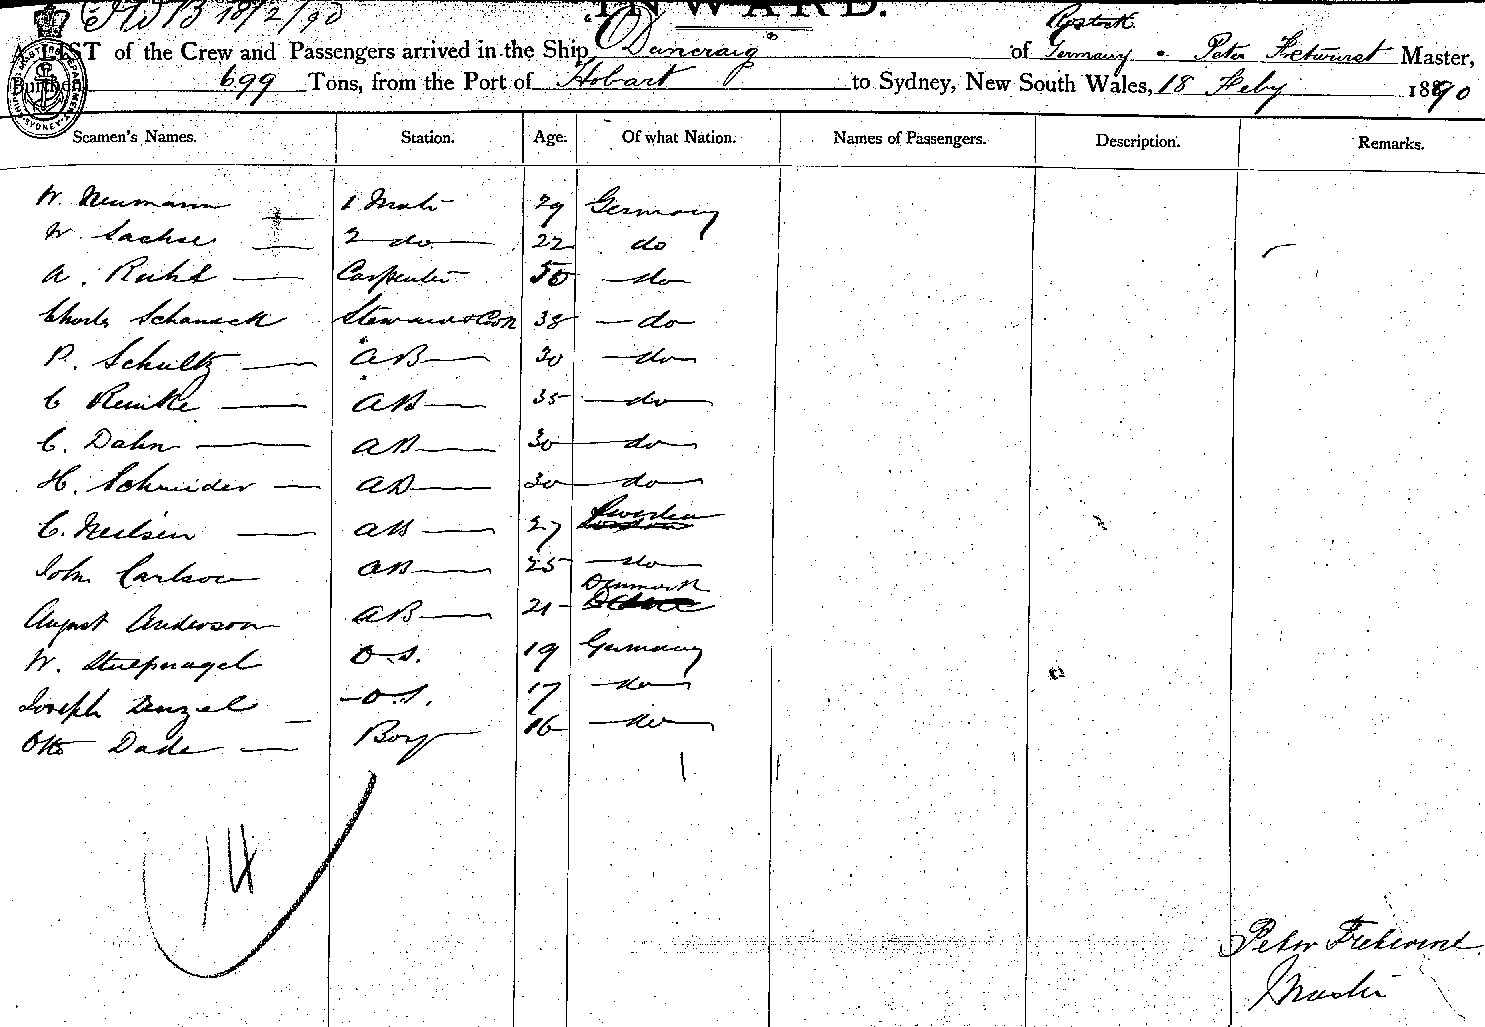 18/2/90
INWARD.
A LIST of the Crew and Passengers arrived in the Ship "Duncraig" of Rostock Germany Peter Master,
Burthen 699 Tons, from the Port of Hobart to Sydney, New South Wales, 18 Feby 1890
Seamen's Names. Station. Age. Of what Nation. Names of Passengers. Description. Remarks.
W. Neumann 1 Mate 29 Germany
W. Sachse 2 do 22 do
A. Carpenter 50 do
Charles Steward & Cook 38 do
P. Schultz AB 30 do
C Reinke AB 35 do
C. Dahn AB 30 do
H. Schneider AB 30 do
C. Neilsen AB 27 Sweden
John Carlson AB 25 do
August Anderson AB 21 Denmark
W. Stuelpnagel O.S. 19 Germany
Joseph Denzel O.S. 17 do
Otto Dade Boy 16 do
14
Peter
Master